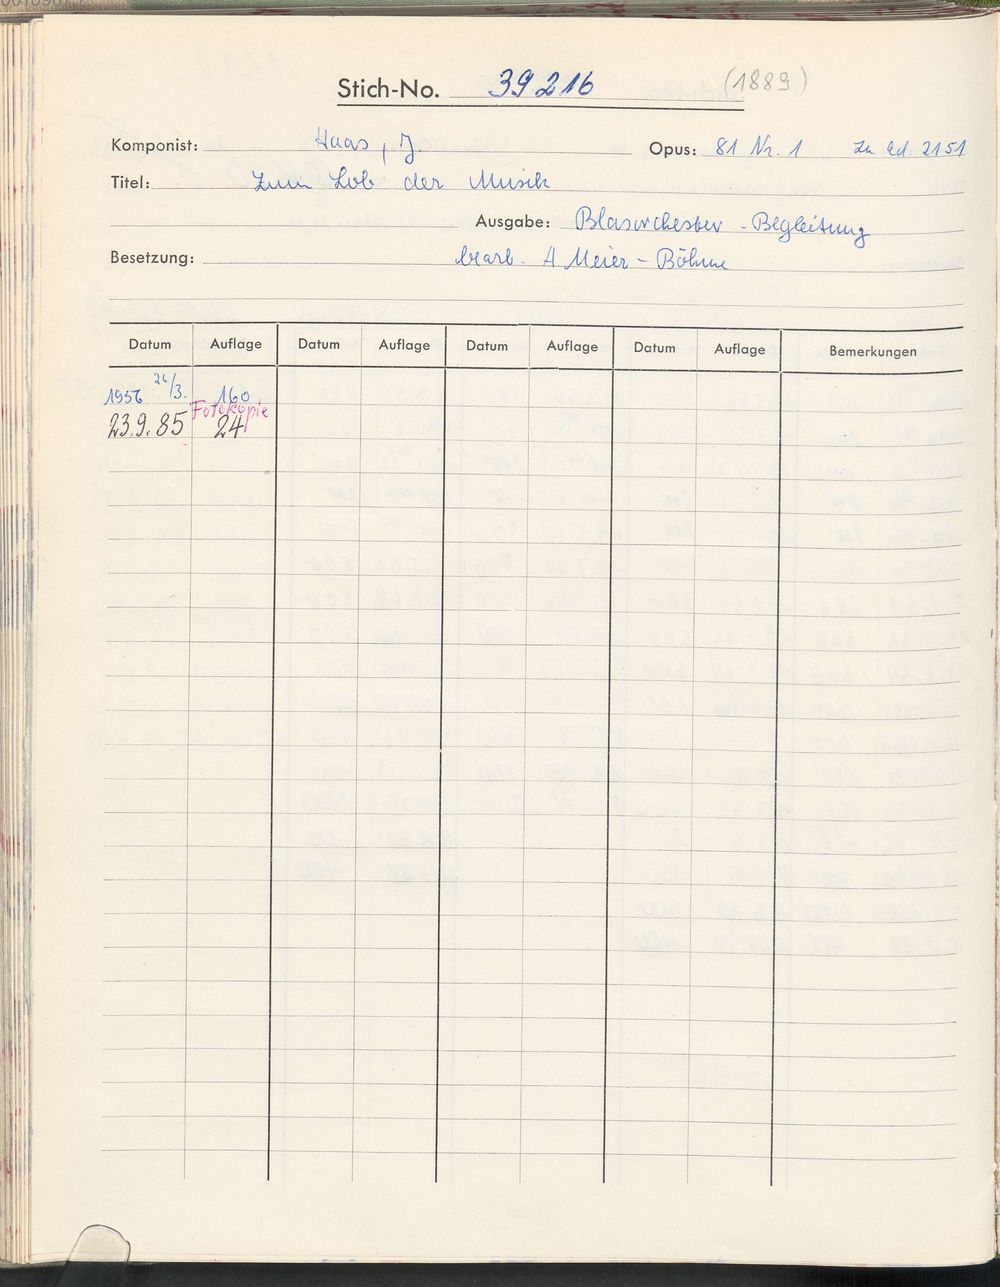 Stich-No. 39216 (1889)
Komponist: Haas, J. Opus: 81 Nr. 1 Zu Ed. 2151
Titel: Zum Lob der Musik
Ausgabe: Blasorchester - Begleitung
Besetzung: bearb. A Meier - Böhme
Datum Auflage Datum Auflage Datum Auflage Datum Auflage Bemerkungen
1956 26/3. 160
Fotokopie
23.9.85 24